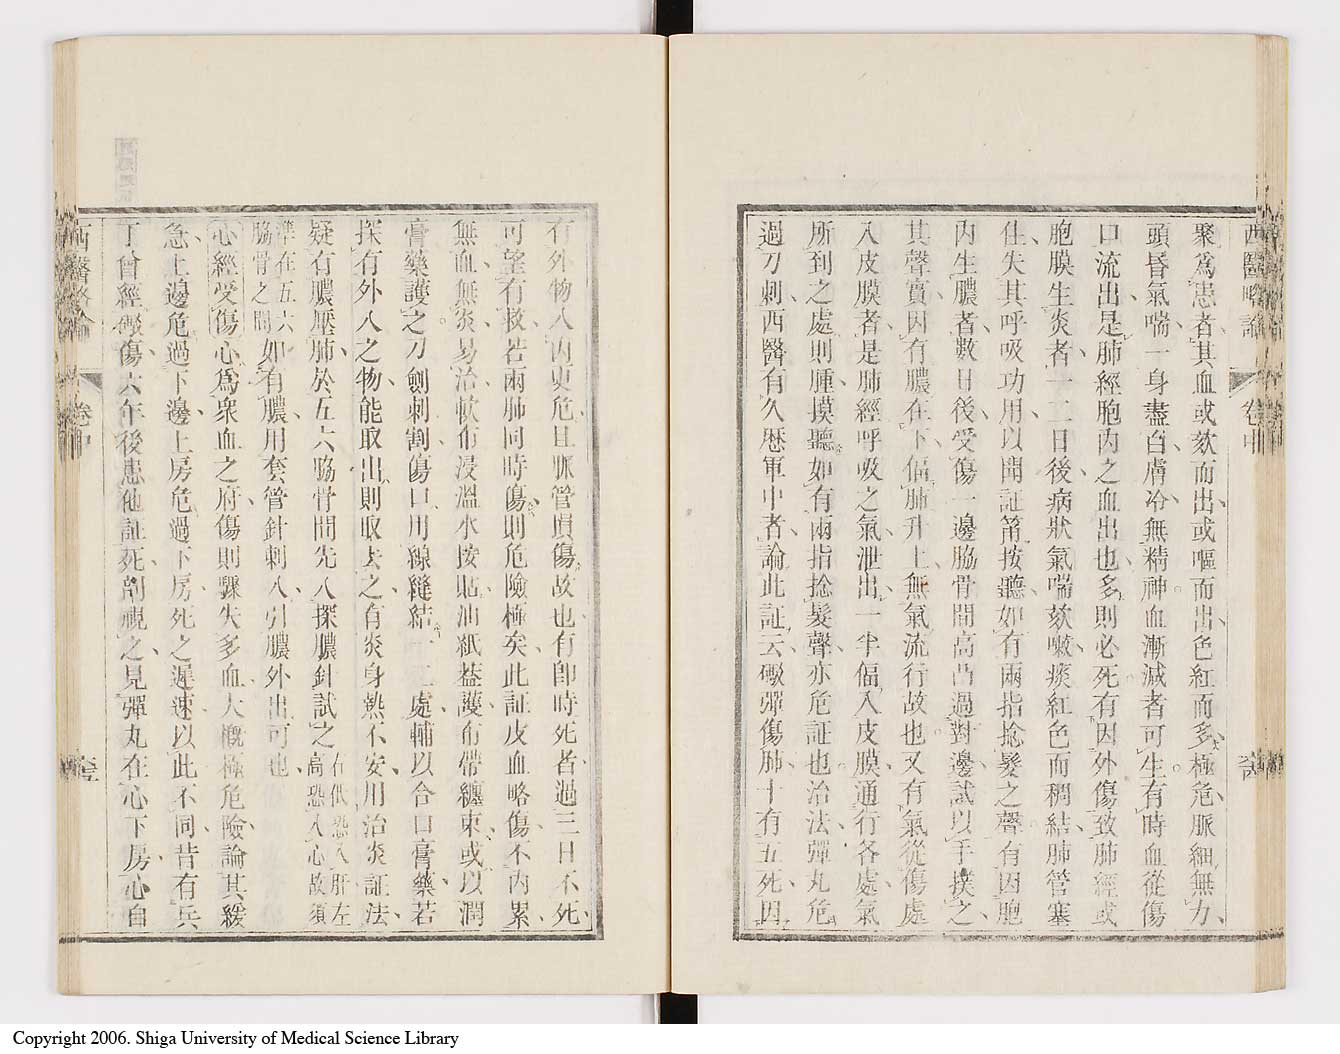 西醫略論 卷中
聚爲患者其血或欬而出或嘔而出色紅而多極危脈細無力
頭昏氣喘一身盡白膚冷無精神血漸減者可生有時血從傷
口流出是肺經胞內之血出也多則必死有因外傷致肺經或
胞膜生炎者一二日後病狀氣喘欬嗽痰紅色而稠結肺管塞
住失其呼吸功用以聞証筩按聽如有兩指捻髮之聲有因胞
內生膿者數日後受傷一邊脇骨間高凸過對邊試以手撲之
其聲實因有膿在下偪肺升上無氣流行故也又有氣從傷處
入皮膜者是肺經呼吸之氣泄出一半偪入皮膜通行各處氣
所到之處則腫摸聽如有兩指捻髮聲亦危証也治法彈丸危
過刀刺西醫有久歷軍中者論此証云礮彈傷肺十有五死因
有外物入內更危且脈管損傷故也有卽時死者過三日不死
可望有救若兩肺同時傷則危險極矣此証皮血略傷不內累
無血無炎易治軟布浸溫水按貼油紙葢護布帶纏束或以潤
膏藥護之刀劍刺割傷口用線縫結一二處輔以合口膏藥若
探有外入之物能取出則取去之有炎身熱不安用治炎証法
疑有膿壓肺於五六脇骨間先入探膿針試之右低恐入肝左高恐入心故須
準在五六脇骨之間如有膿用套管針刺入引膿外出可也
心經受傷心爲衆血之府傷則驟失多血大槪極危險論其緩
急上邊危過下邊上房危過下房死之遲速以此不同昔有兵
丁曾經礮傷六年後患他証死剖視之見彈丸在心下房心自
西醫略論 卷中